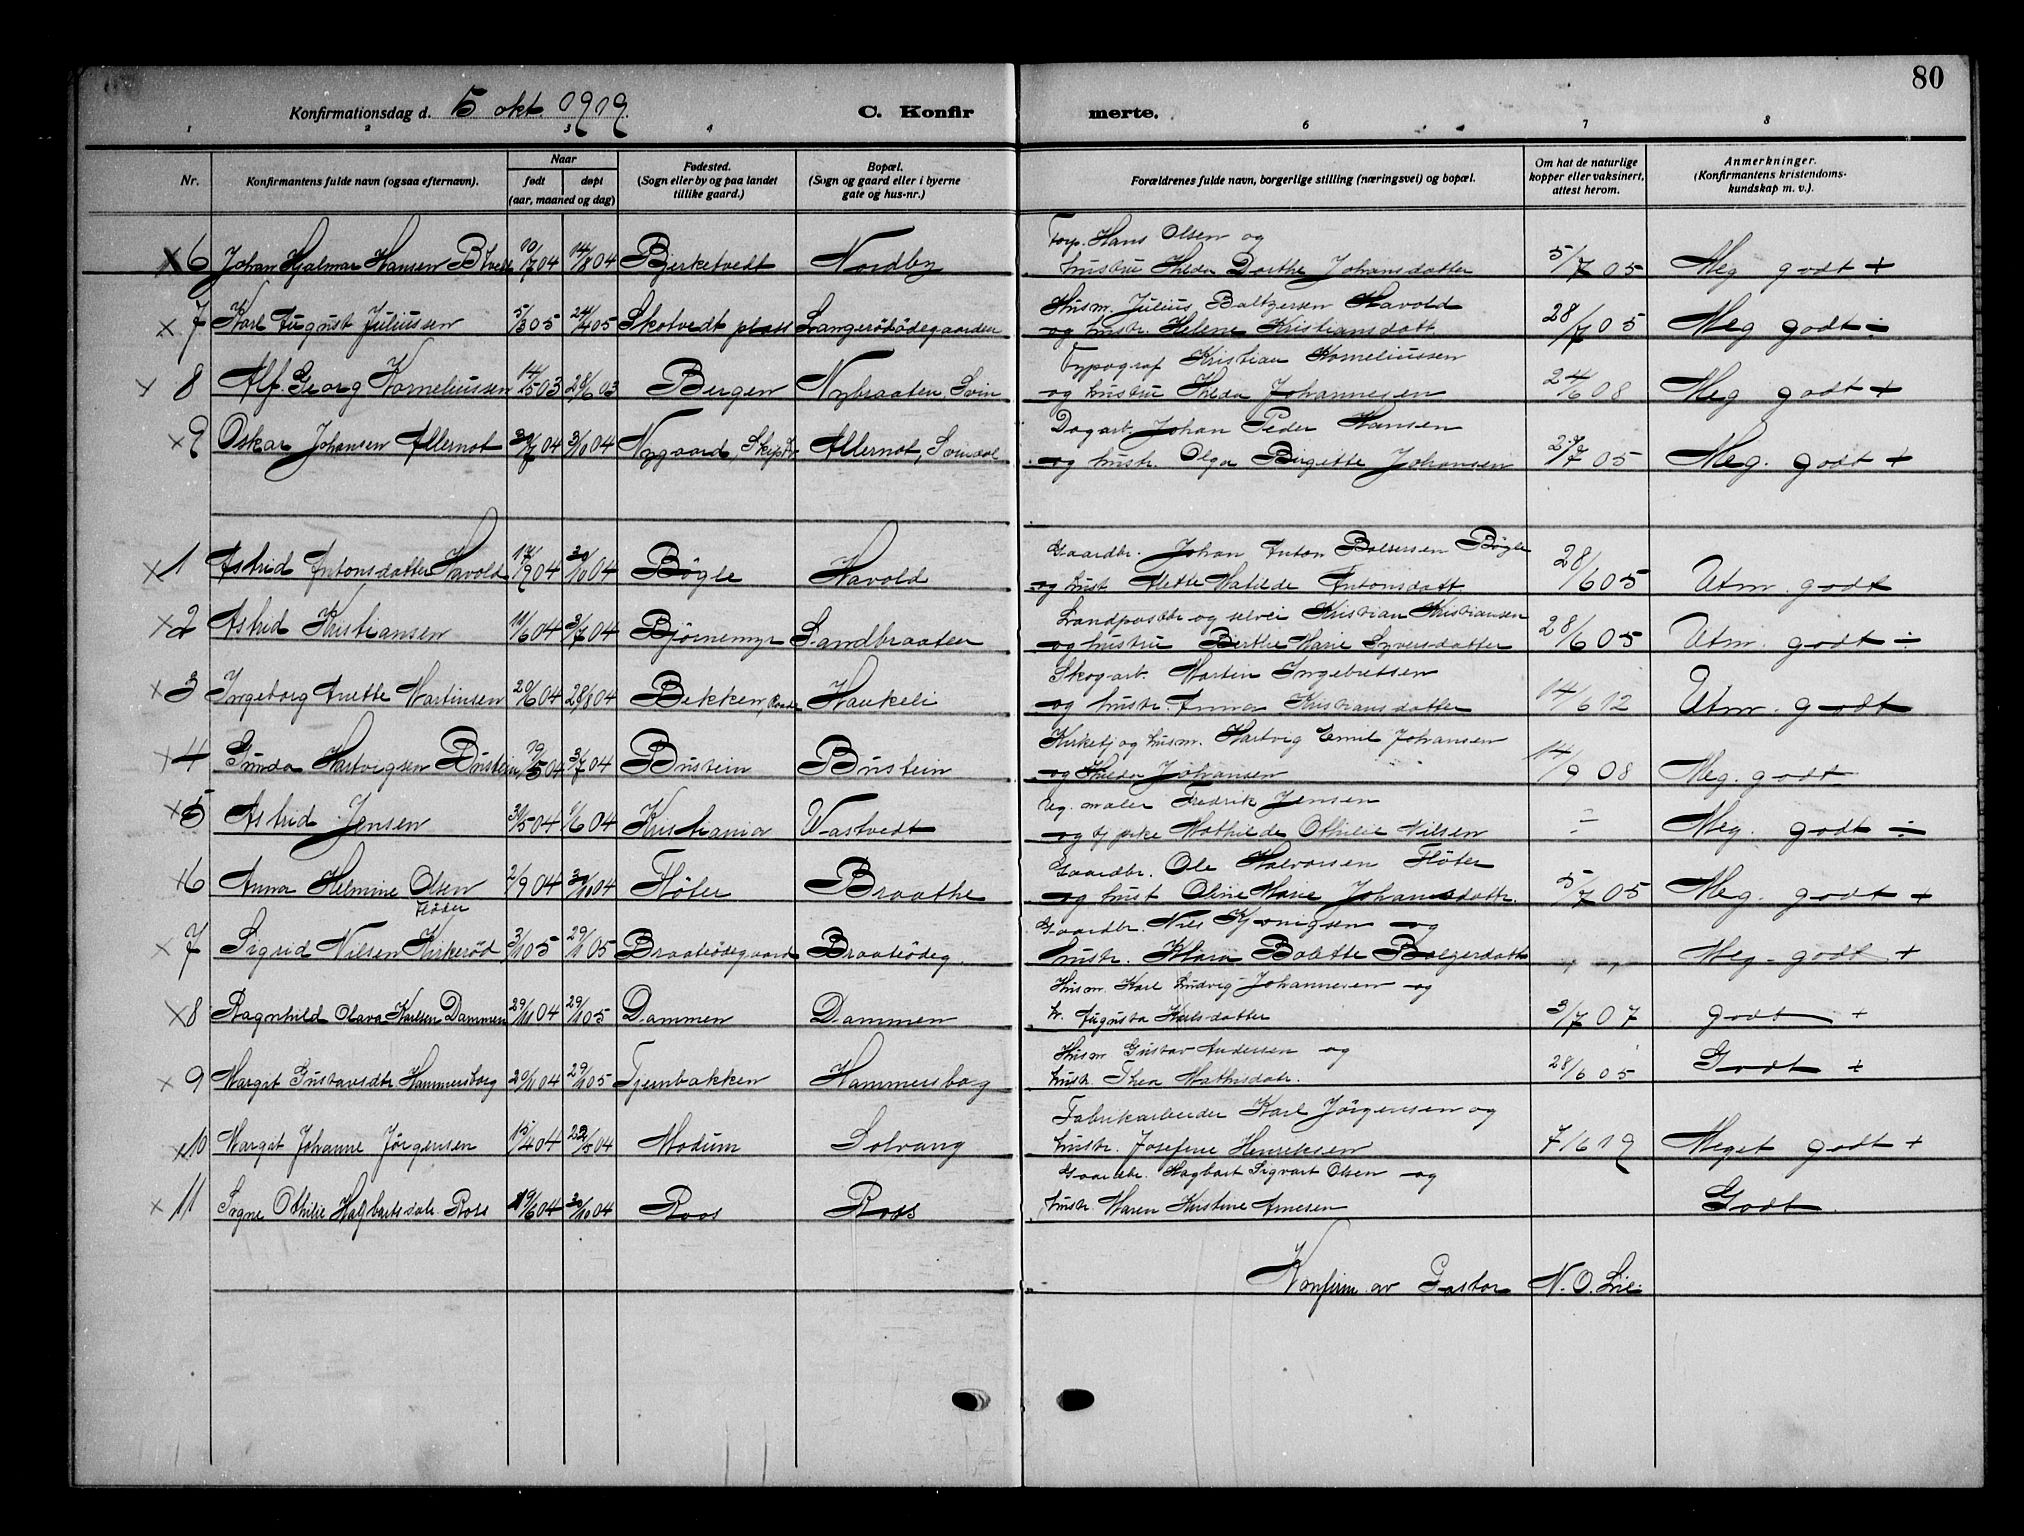 80
Konfirmationsdag d. 5 okt. 1919.
C. Konfirmerte.
1 2 3 4 6 7 8
Nr. Konfirmantens fulde navn (ogsaa efternavn). Naar født døpt (aar, maaned og dag) Fødested. (Sogn eller by og paa landet tillike gaard.) Bopæl. (Sogn og gaard eller i byerne gate og hus-nr.) Forældrenes fulde navn, borgerlige stilling (næringsvei) og bopæl. Om hat de naturlige kopper eller vaksinert, attest herom. Anmerkninger. (Konfirmantens kristendomskundskap m. v.)
Forp. Hans Olsen og
x 6 Johan Hjalmar Hansen 10/7 04 14/8 04 Birketvedt Nordby hustru Hilda Dorthe Johansdatter 5/7 05 Meg godt +
Husm. Julius Baltzersen Havold
x 7 Karl August Juliussen 5/3 05 24/4 05 Skotvedt plass Langerødødegaarden og hustr. Helene Kristiansdatt. 28/7 05 Meg godt ÷
Typograf Kristian Korneliussen
x 8 Alf Georg Korneliussen 14/5 03 28/6 03 Bergen Nybraaten, Svin og hustru Hilda Johannesen 24/6 08 Meg godt +
Dagarb. Johan Peder Hansen
x 9 Oskar Johansen Allernot 30/7 04 3/10 04 Nygaard, Skiptv Allernot, Svindal og hustr. Olga Birgitte Johansen 29/7 05 Meg. godt +
Gaardbr. Johan Anton Bøgle
x 1 Astrid Antonsdatter Havold 17/9 04 30/10 04 Bøgle Havold og hust. Matilde Antonsdatt. 28/6 05 Utm. godt
Landpostbr og selvei Kristian Kristiansen
x 2 Astrid Kristiansen 11/6 04 3/7 04 Bjørnemyr Sandbraaten og hustru Berthe Marie Syversdatter 28/6 05 Utm. godt ÷
Skogarb. Martin Ingebretsen
x 3 Ingeborg Anette Martinsen 20/6 04 28/8 04 Bekken, Haukeli og hustr. Anna Kristiansdatter 14/6 12 Utm. godt
Kirketj og husm. Hartvig Emil Johansen
x 4 Gunda Hartvigsen Bustein 19/5 04 3/7 04 Bustein Bustein og Hilda Johansen 14/9 08 Meg. godt
Ug. maler Fredrik Jensen
x 5 Astrid Jensen 30/5 04 1/6 04 Kristiania Vastvedt og pike Mathilde Othilie Nilsen ÷ Meg. godt ÷
Gaardbr. Ole Halvorsen Fløter
x 6 Anna Helmine Olsen Fløter 2/9 04 30/10 04 Fløter Braathe og hust Oline Marie Johannesdattr. 5/7 05 Meg. godt +
Gaardbr. Nils og
x 7 Sigrid Nilsen Kirkerød 3/1 05 29/1 05 Braatiødegaard Braatiødeg. hustr. Klara Bolette " " Meg. godt +
Husm. Karl Ludvig Johannesen og
x 8 Ragnhild Olava Karlsen Dammen 29/11 04 29/1 05 Dammen Dammen h. Augusta Karlsdatter 3/7 07 godt +
Husm Gustav Andersen og
x 9 Margit Gustavsdtr Hammersborg 29/11 04 29/1 05 Tjernbakken Hammersborg hustr. Thea Mathisdatr. 28/6 05 Godt +
Fabrikarbeider Karl Jörgensen og
x 10 Margit Johanne Jörgensen 15/4 04 22/5 04 Modum Solvang hustr. Josefine Henriksen 7/6 19 Meget godt +
Gaardbr. Hagbart Sigvart Olsen og
x 11 Signe Othilie Hagbartsdatr. Roos 19/6 04 30/10 04 Roos Roos hustr. Maren Kristine Arnesen Godt.
Konfirm. av Pastor N. O. Lie.